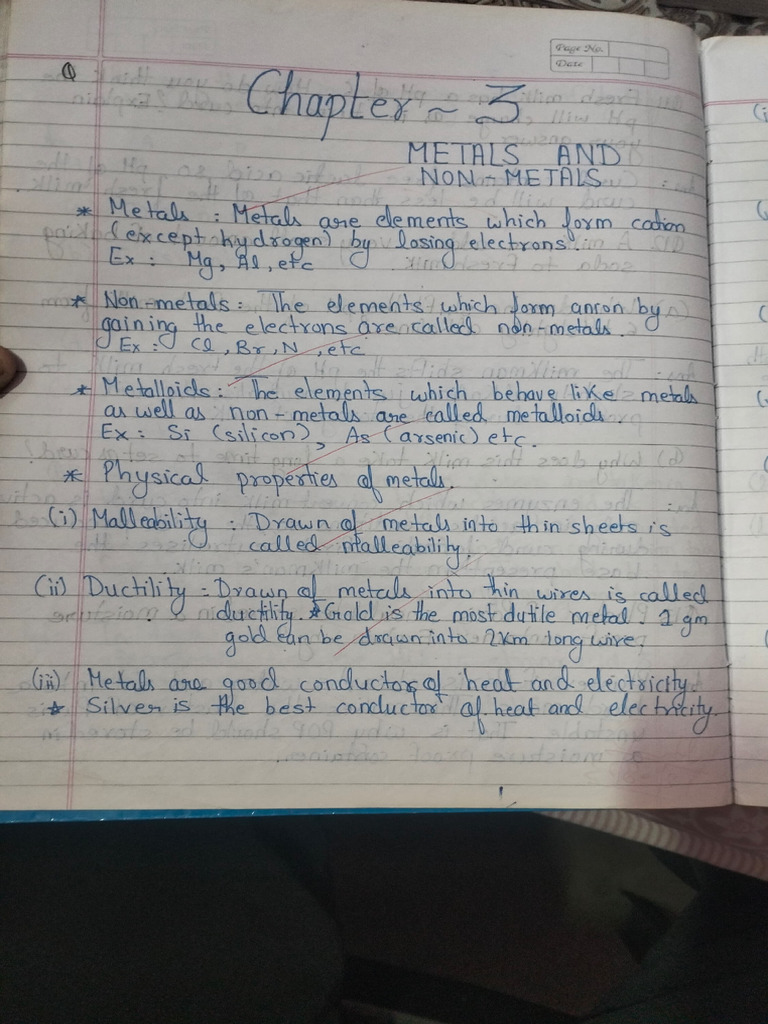 Page No.
Date
Chapter - 3
METALS AND
NON-METALS
* Metals : Metals are elements which form cation
(except hydrogen) by losing electrons.
Ex : Mg, Al, etc
* Non metals : The elements which form anion by
gaining the electrons are called non-metals.
Ex : Cl, Br, N, etc
* Metalloids : The elements which behave like metals
as well as non-metals are called metalloids.
Ex : Si (silicon), As (arsenic) etc.
* Physical properties of metals.
(i) Malleability : Drawn of metals into thin sheets is
called malleability.
(ii) Ductility : Drawn of metals into thin wires is called
ductility. * Gold is the most dutile metal. 1 gm
gold can be drawn into 2km long wire.
(iii) Metals are good conductors of heat and electricity.
* Silver is the best conductor of heat and electricity.